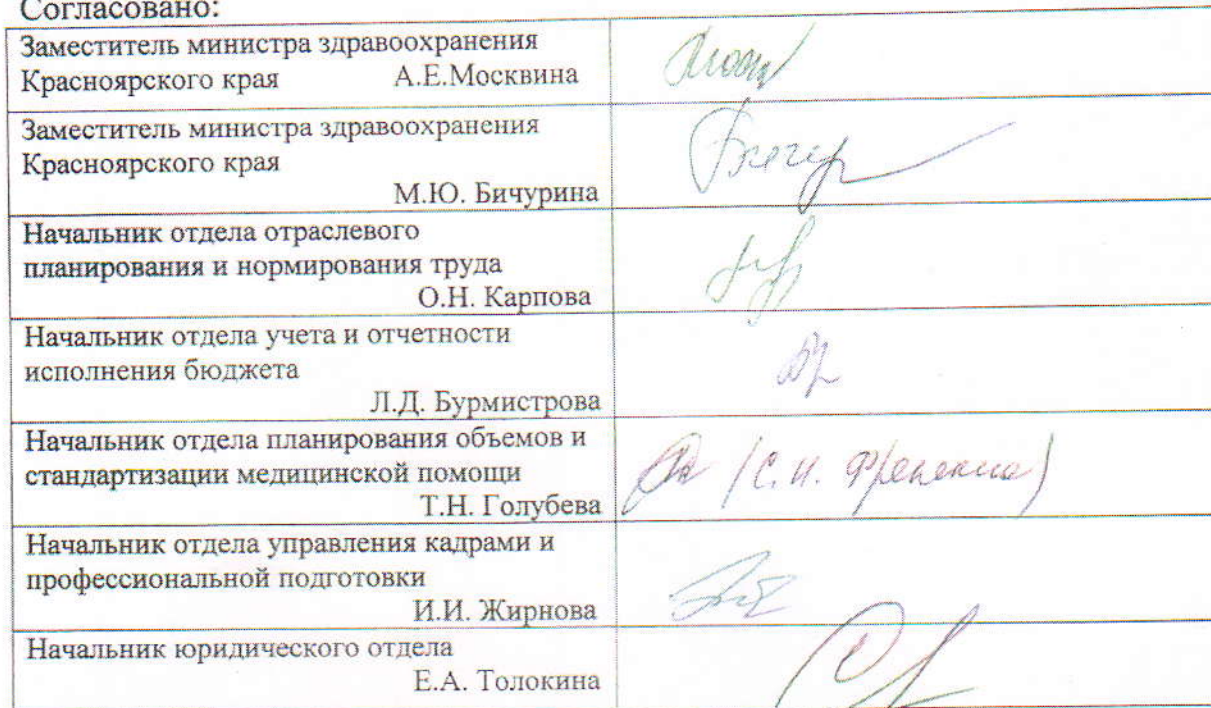 Согласовано:
Заместитель министра здравоохранения
Красноярского края А.Е.Москвина
Заместитель министра здравоохранения
Красноярского края
М.Ю. Бичурина
Начальник отдела отраслевого
планирования и нормирования труда
О.Н. Карпова
Начальник отдела учета и отчетности
исполнения бюджета
Л.Д. Бурмистрова
Начальник отдела планирования объемов и
стандартизации медицинской помощи
Т.Н. Голубева
Начальник отдела управления кадрами и
профессиональной подготовки
И.И. Жирнова
Начальник юридического отдела
Е.А. Толокина